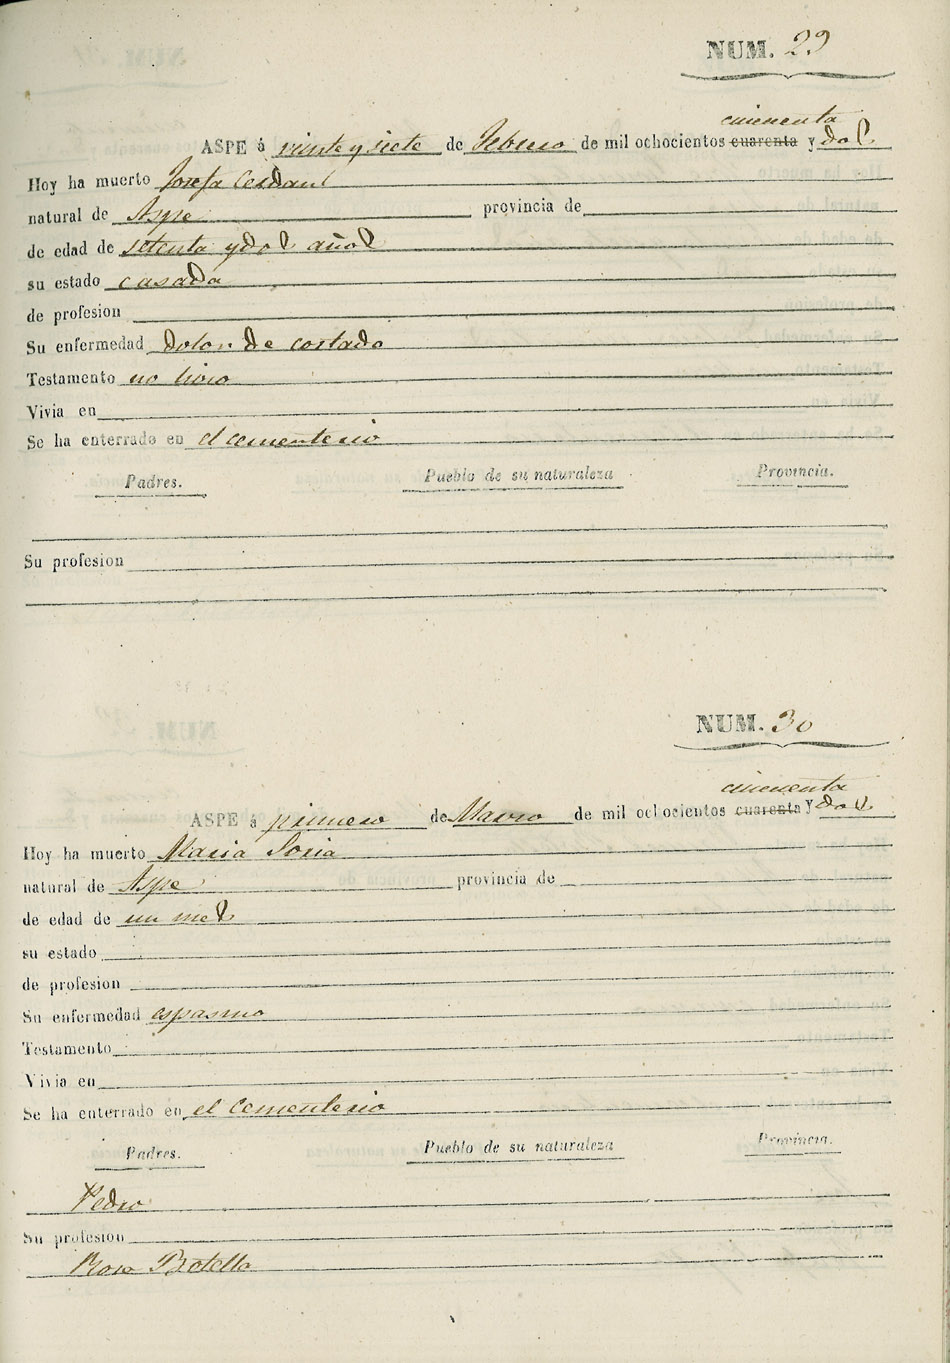 NUM. 29
cincuenta
ASPE á vinte y siete de Febrero de mil ochocientos cuarenta y dos
Hoy ha muerto Josefa Cerdan
natural de Aspe provincia de
de edad de setenta y dos años
su estado casada
de profesion
Su enfermedad dolor de costado
Testamento no hizo
Vivia en
Se ha enterrado en el cementerio
Padres. Pueblo de su naturaleza Provincia.
Su profesion
NUM. 30
cincuenta
ASPE á primero de Marzo de mil ochocientos cuarenta y dos
Hoy ha muerto Maria Soria
natural de Aspe provincia de
de edad de un mes
su estado
de profesion
Su enfermedad espasmo
Testamento
Vivia en
Se ha enterrado en el cementerio
Padres. Pueblo de su naturaleza Provincia.
Pedro
Su profesion
Rosa Botella